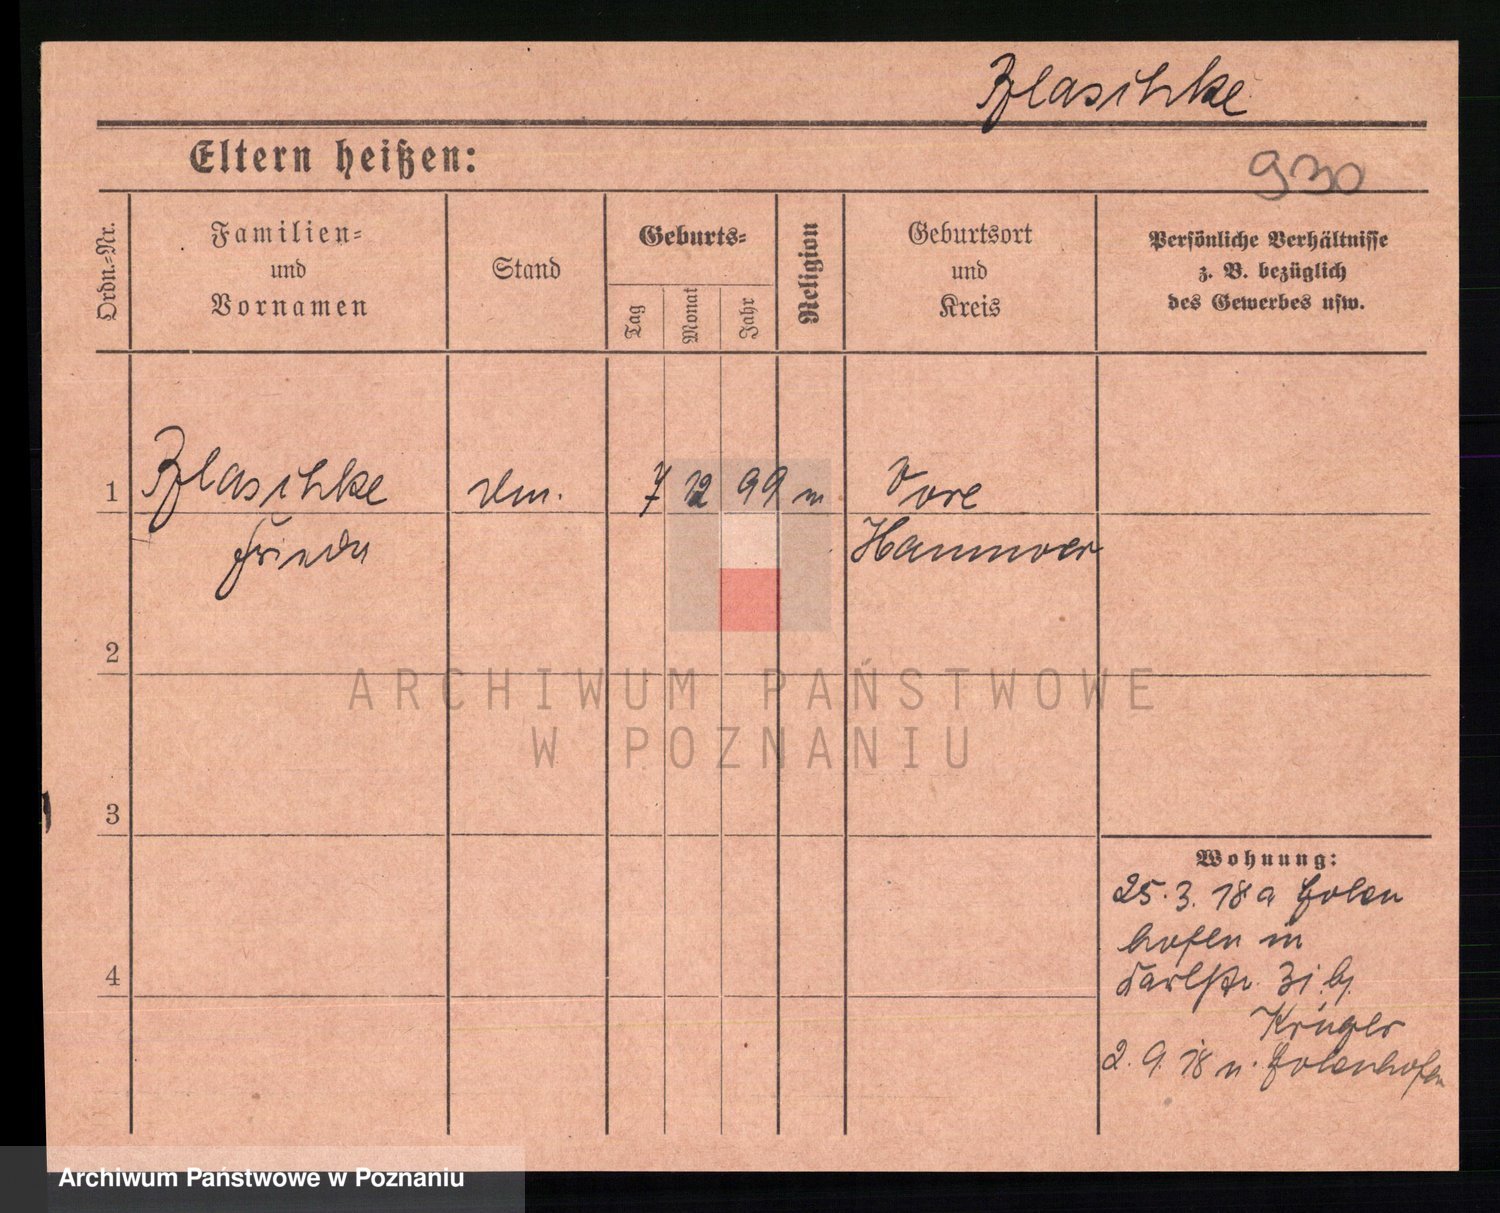 Blaschke
Eltern heißen:
930
Ordn.-Nr.
Familien-
und
Vornamen
Stand
Geburts-
Tag
Monat
Jahr
Religion
Geburtsort
und
Kreis
Persönliche Verhältnisse
z. B. bezüglich
des Gewerbes usw.
1
Blaschke
7 12 99
Frieda
Hannover
2
3
4
Wohnung:
25.3.18 a
in
31 b/
Krüger
2.9.18 n.
ARCHIWUM PAŃSTWOWE
W POZNANIU
Archiwum Państwowe w Poznaniu